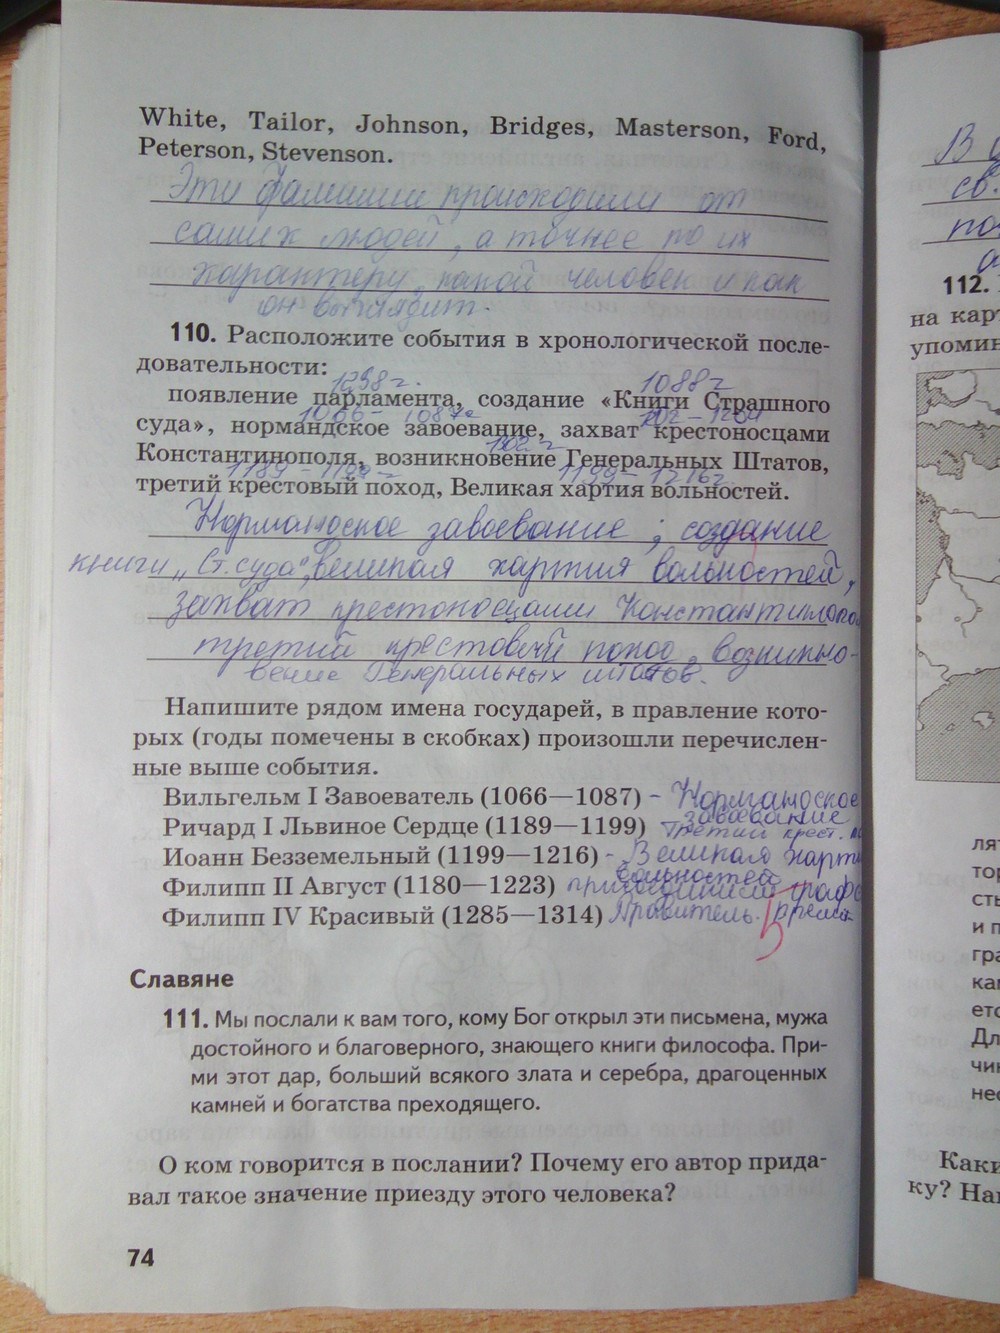 White, Tailor, Johnson, Bridges, Masterson, Ford,
Peterson, Stevenson.
Эти фамилии происходили от
самих людей, а точнее по их
характеру, какой человек и как
он выглядит.
110. Расположите события в хронологической после-
довательности:
1258г.
1088г
появление парламента, создание «Книги Страшного
1066- 1087г
1202-1204
суда», нормандское завоевание, захват крестоносцами
1302г
Константинополя, возникновение Генеральных Штатов,
1189-1199-
1199-1216г.
третий крестовый поход, Великая хартия вольностей.
Нормандское завоевание; создание
книги „Ст. суда", великая хартия вольностей,
захват крестоносцами Константинопо
третий крестовый поход, возникно-
вение Генеральных штатов.
Напишите рядом имена государей, в правление кото-
рых (годы помечены в скобках) произошли перечислен-
ные выше события.
Вильгельм I Завоеватель (1066—1087) - Нормандское
завоевание
Ричард I Львиное Сердце (1189—1199) Третий крест. п
Иоанн Безземельный (1199—1216) - Великая харти
вольностей
Филипп II Август (1180—1223) присоединил графс
Филипп IV Красивый (1285—1314) Правитель
5
Славяне
111. Мы послали к вам того, кому Бог открыл эти письмена, мужа
достойного и благоверного, знающего книги философа. При-
ми этот дар, больший всякого злата и серебра, драгоценных
камней и богатства преходящего.
О ком говорится в послании? Почему его автор прида-
вал такое значение приезду этого человека?
74
В
св.
112.
на карт
упомин
лят
тор
сть
и п
гра
кам
етс
Дл
чин
нес
Каки
ку? Наг